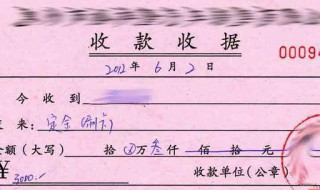 收款收据
00094
2012年6月2日
今收到
来：定金（刷卡）
金额（大写） 拾⊗万叁仟 佰 拾 元
¥ 3000.- 收款单位（公章）